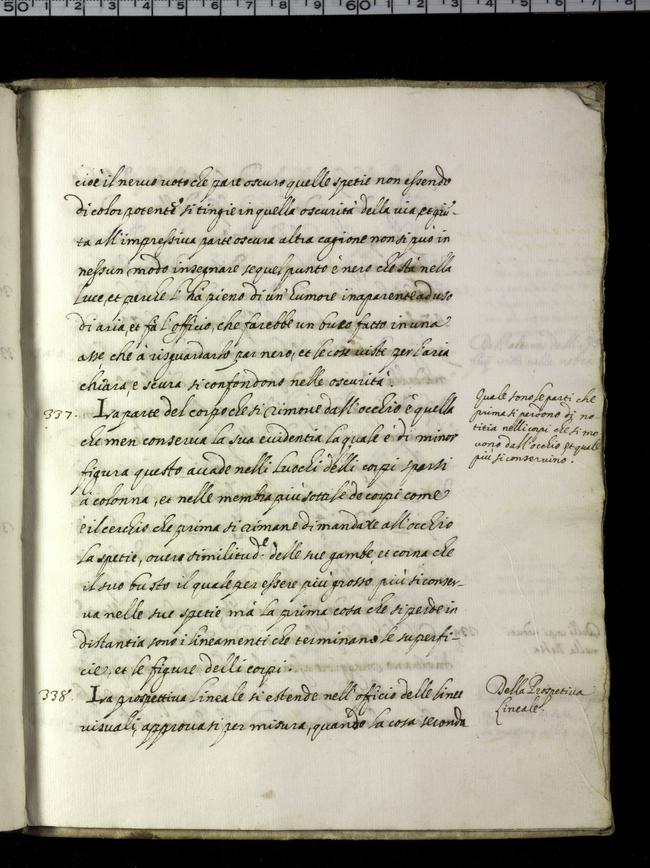 cioè il neruo uoto che pare oscuro quelle spetie non essendo
di color potente si tingie in quella oscurità della uia, et giu-
ta all'impressiua parte oscura altra cagione non si può in
nessun modo insegnare se quel punto è nero che stà nella
luce, et perche l'hà pieno di un'humore inaparente ad uso
di aria, et fà l'officio, che farebbe un buco fatto in una
asse che à risguardarlo par nero, et le cose uiste per l'aria
chiara, e scura si confondono nelle oscurità
337. La parte del corpo che si rimoue dall'occhio è quella
che men conserua la sua euidentia la quale è di minor
figura questo acade nelli Luschi delli corpi sparsi
à colonna, et nelle membra più sottile de corpi come
è il cerchio che prima si rimane di mandare all'occhio
la spetie, ouero similitud.e delle sue gambe et corna che
il suo busto il quale per essere più grosso, più si conser-
ua nelle sue spetie mà la prima cosa che si perde in
distantia sono i lineamenti che terminano le superfi-
cie, et le figure delli corpi.
Quale sono le parti che
prima si perdono di no-
titia nelli corpi che si mo
uono dall'occhio et quale
più si conseruino.
338. La prospettiua Lineale si estende nell'officio delle linee
uisuali, approuati per misura, quando la cosa seconda
Della Prospetiua
Lineale.